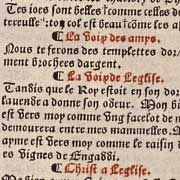 Tes ioes sont belles cõme celles de
terelle: ton col est beau cõme les a
¶ La voix des amys.
Nous te ferons des templettes dor/
ment brochees dargent.
¶ La Voix de Leglise.
Tandis que le Roy estoit en son dor
lauende a donne son odeur. Mon bi
est vers moy comme vng facelot de m
demourera entre mes mammelles.
ayme est vers moy comme le raisin d
es vignes de Engaddi.
¶ Christ a Leglise.